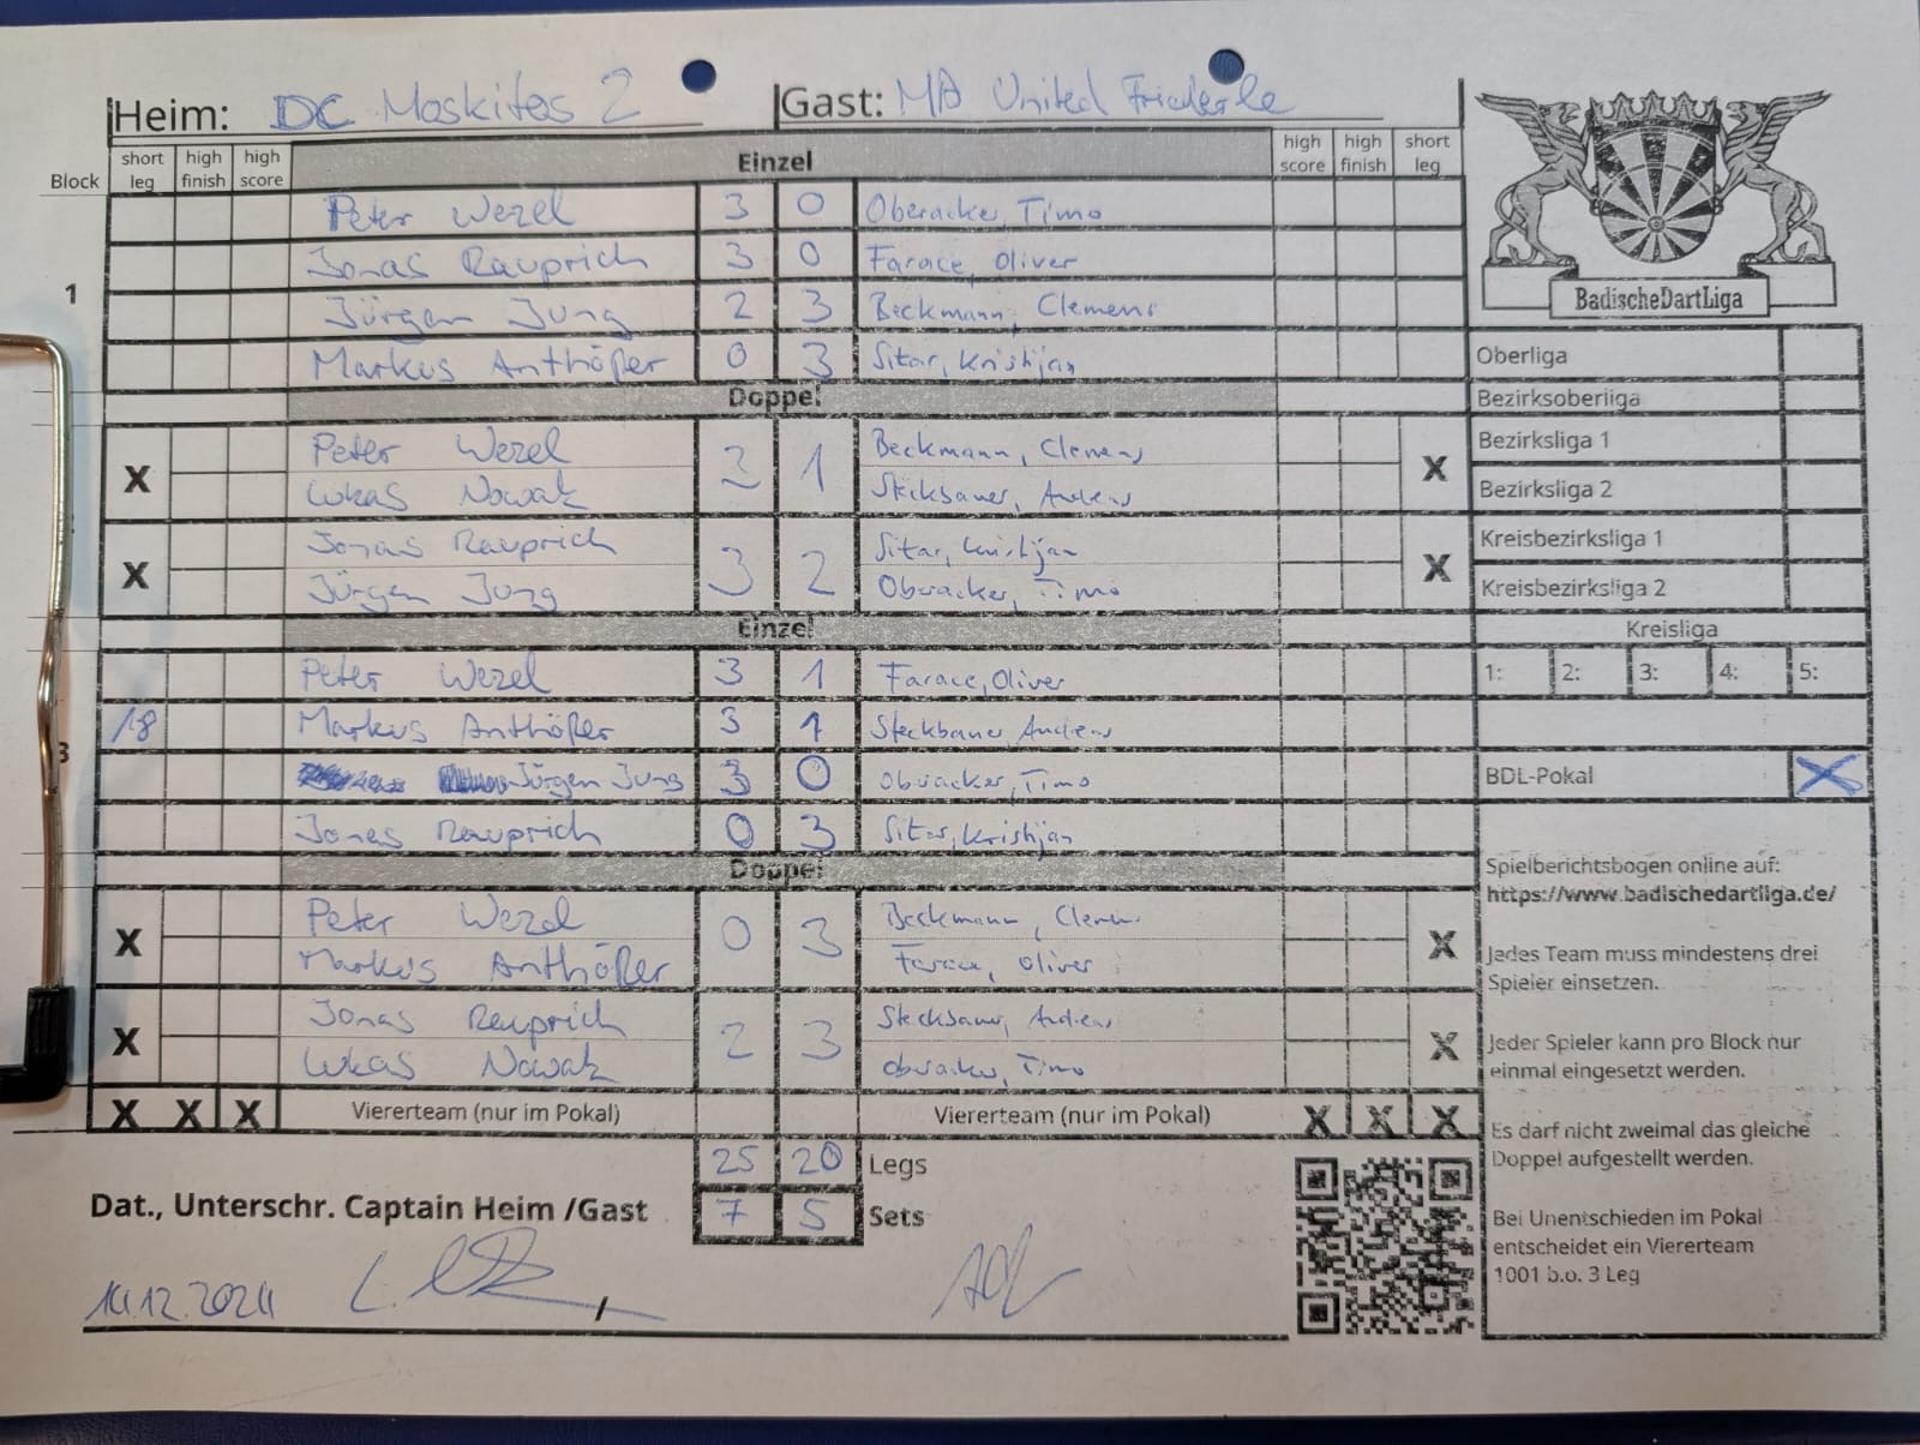 Heim: DC Moskitos 2 Gast: MA United Friederle
Block short leg high finish high score Einzel high score high finish short leg
Peter Wezel 3 0 Oberacker, Timo
Jonas Rauprich 3 0 Farace, Oliver
1
Jürgen Jung 2 3 Beckmann, Clemens
BadischeDartLiga
Markus Anthöfer 0 3 Sitar, Kristijan
Oberliga
Doppel
Bezirksoberliga
Peter Wezel Beckmann, Clemens
Bezirksliga 1
X 2 1 X
Lukas Nowak Steckbauer, Andreas
Bezirksliga 2
Jonas Rauprich Sitar, Kristijan
Kreisbezirksliga 1
X 3 2 X
Jürgen Jung Oberacker, Timo
Kreisbezirksliga 2
Einzel
Kreisliga
Peter Wezel 3 1 Farace, Oliver
1: 2: 3: 4: 5:
18 Markus Anthöfer 3 1 Steckbauer, Andreas
3
Jürgen Jung 3 0 Oberacker, Timo
BDL-Pokal X
Jonas Rauprich 0 3 Sitar, Kristijan
Doppel
Spielberichtsbogen online auf:
https://www.badischedartliga.de/
Peter Wezel Beckmann, Clemens
X 0 3 X
Markus Anthöfer Farace, Oliver
Jedes Team muss mindestens drei
Spieler einsetzen.
Jonas Rauprich Steckbauer, Andreas
X 2 3 X
Lukas Nowak Oberacker, Timo
Jeder Spieler kann pro Block nur
einmal eingesetzt werden.
X X X Viererteam (nur im Pokal) Viererteam (nur im Pokal) X X X
Es darf nicht zweimal das gleiche
Doppel aufgestellt werden.
25 20 Legs
Dat., Unterschr. Captain Heim /Gast 7 5 Sets
Bei Unentschieden im Pokal
entscheidet ein Viererteam
1001 b.o. 3 Leg
14.12.2024